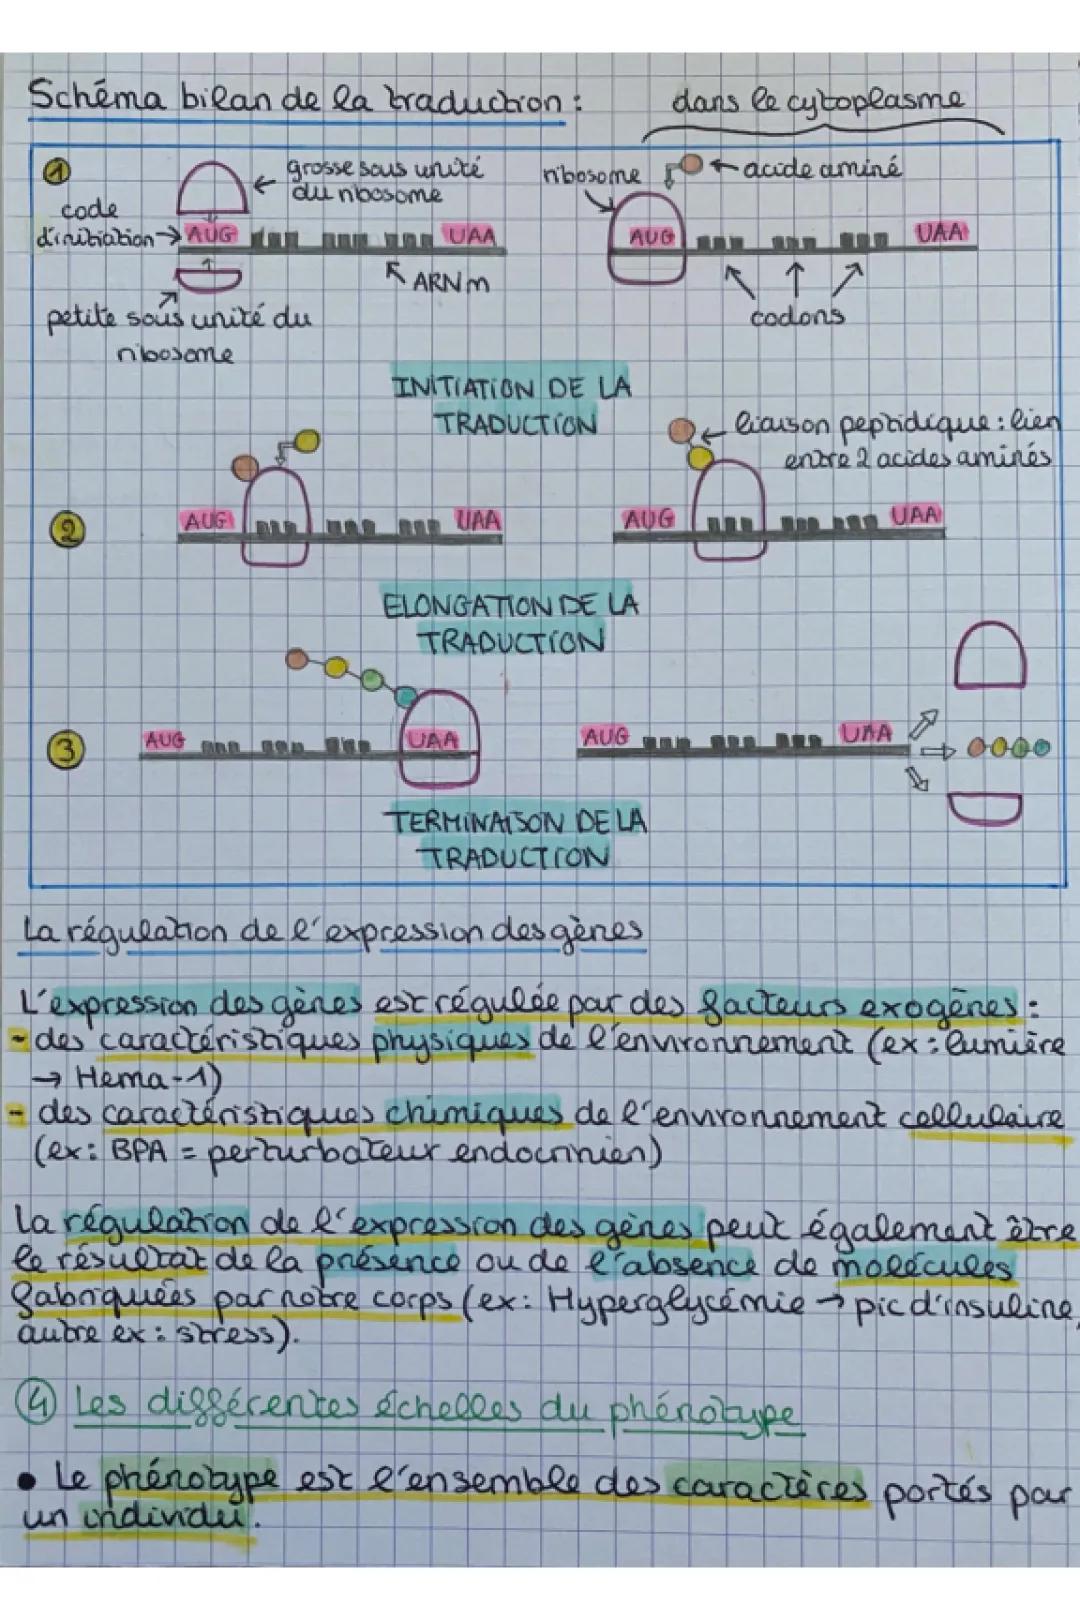 Schéma bilan de la traduction :
dans le cytoplasme
1
grosse sous unité
du ribosome
code
d'initiation
AUG
UAA
ARNm
petite sous unité du
ribosome
ribosome
acide aminé
AUG
UAA
codons
INITIATION DE LA
TRADUCTION
liaison peptidique : lien
entre 2 acides aminés
2
AUG
UAA
AUG
UAA
ELONGATION DE LA
TRADUCTION
3
AUG
UAA
AUG
UAA
TERMINAISON DE LA
TRADUCTION
La régulation de l'expression des gènes
L'expression des gènes est régulée par des facteurs exogènes :
- des caractéristiques physiques de l'environnement (ex : lumière
→ Hema-1)
- des caractéristiques chimiques de l'environnement cellulaire
(ex : BPA = perturbateur endocrinien)
La régulation de l'expression des gènes peut également être
le résultat de la présence ou de l'absence de molécules
fabriquées par notre corps (ex : Hyperglycémie → pic d'insuline,
autre ex : stress).
4 Les différentes échelles du phénotype
• Le phénotype est l'ensemble des caractères portés par
un individu.